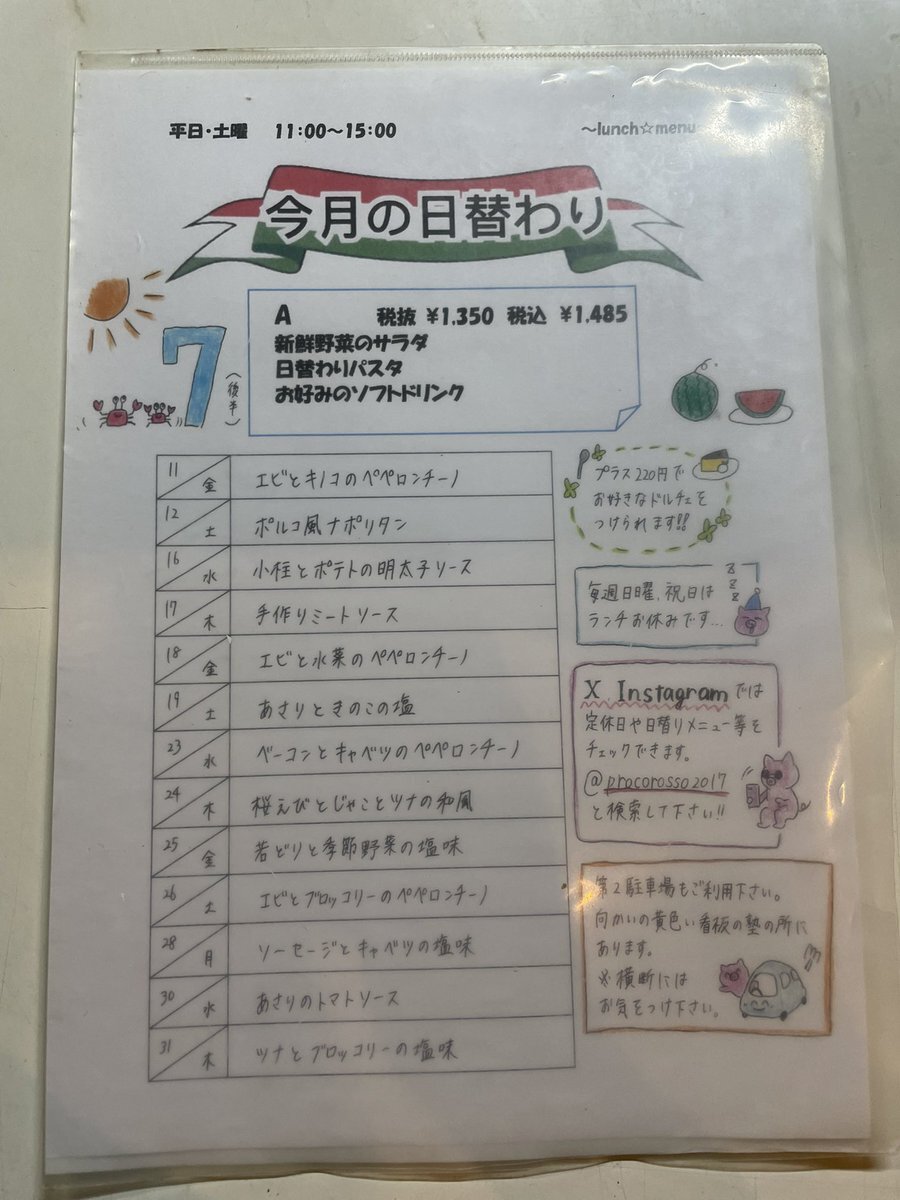 平日・土曜 11:00〜15:00
〜lunch☆menu
今月の日替わり
7
(後半)
A 税抜 ¥1,350 税込 ¥1,485
新鮮野菜のサラダ
日替わりパスタ
お好みのソフトドリンク
11 金 エビとキノコのペペロンチーノ
12 土 ポルコ風ナポリタン
16 水 小柱とポテトの明太子ソース
17 木 手作りミートソース
18 金 エビと水菜のペペロンチーノ
19 土 あさりときのこの塩
23 水 ベーコンとキャベツのペペロンチーノ
24 木 桜えびとじゃことツナの和風
25 金 若どりと季節野菜の塩味
26 土 エビとブロッコリーのペペロンチーノ
28 月 ソーセージとキャベツの塩味
30 水 あさりのトマトソース
31 木 ツナとブロッコリーの塩味
プラス220円で
お好きなドルチェを
つけられます!!
毎週日曜、祝日は
ランチお休みです...
X、Instagramでは
定休日や日替りメニュー等を
チェックできます。
@procorosso2017
と検索して下さい!!
第2駐車場もご利用下さい。
向かいの黄色い看板の塾の所に
あります。
※横断には
お気をつけ下さい。